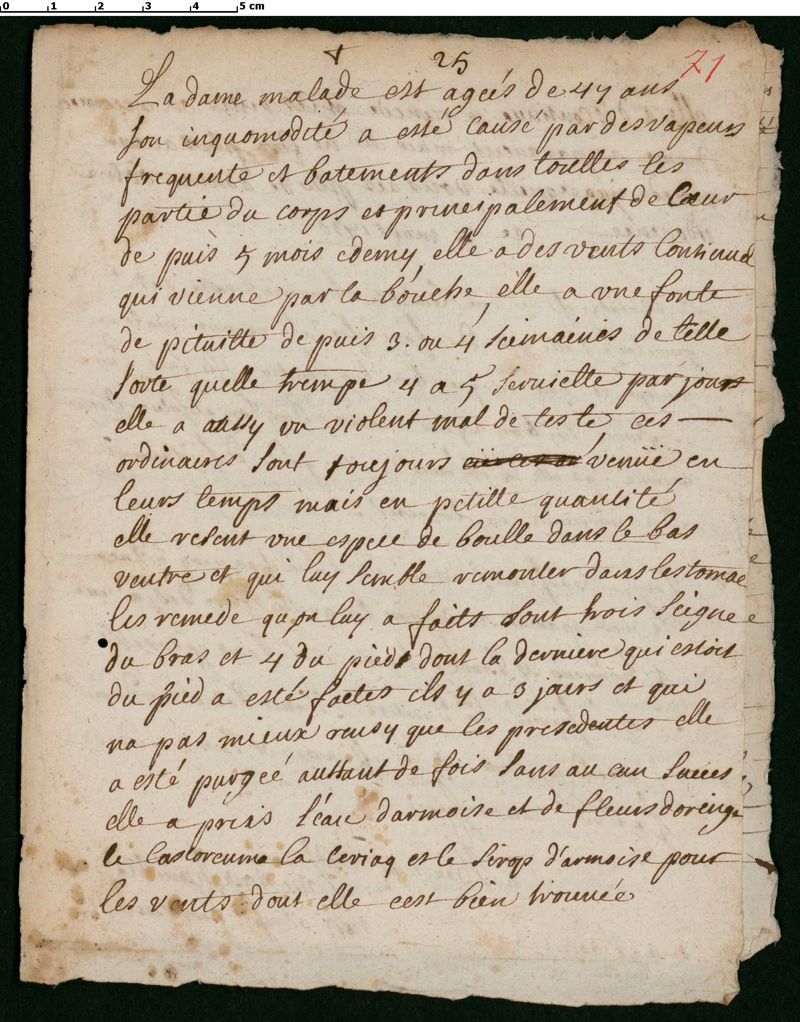 0 1 2 3 4 5 cm
25
71
La dame malade est ageés de 47 ans
son inquomodité a esté causé par des vapeurs
frequente et batements dans touttes les
partie du corps et principalement de Cœur
de puis 5 mois edemy elle a des vents Continuel
qui vienne par la bouche, elle a vne fonte
de pituitte de puis 3. ou 4 seimaines de telle
sorte quelle trempe 4 a 5 seruiette par jours
elle a aussy vn violent mal de teste ces —
ordinaires sont toujours venüe en
leurs temps mais en petitte quantité
elle resent vne espece de boulle dans le bas
ventre et qui luy semble remonter dans lestomac
les remede qu'on luy a faits sont trois seignee
du bras et 4 du pied dont la derniere qui estoit
du pied a esté faetes ils y a 3 jours et qui
na pas mieux reusy que les presedentes elle
a esté purgeé auttant de fois sans au cun succes,
elle a priis l'eau darmoise et de fleurs dorenge
le Castoreume la teriaq et le sirop d'armoise pour
les vents dont elle cest bien trouuée